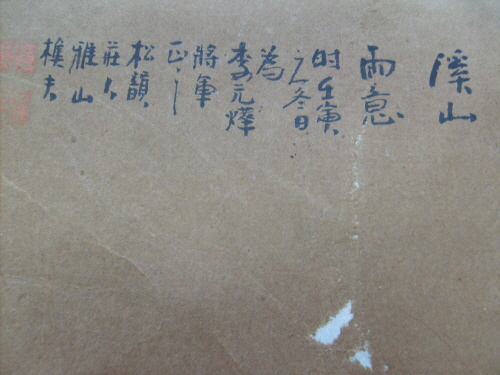 溪山
雨意
时壬寅
之冬日
為
李元燁
將軍
正之
松韻
莊人
雅山
樵夫